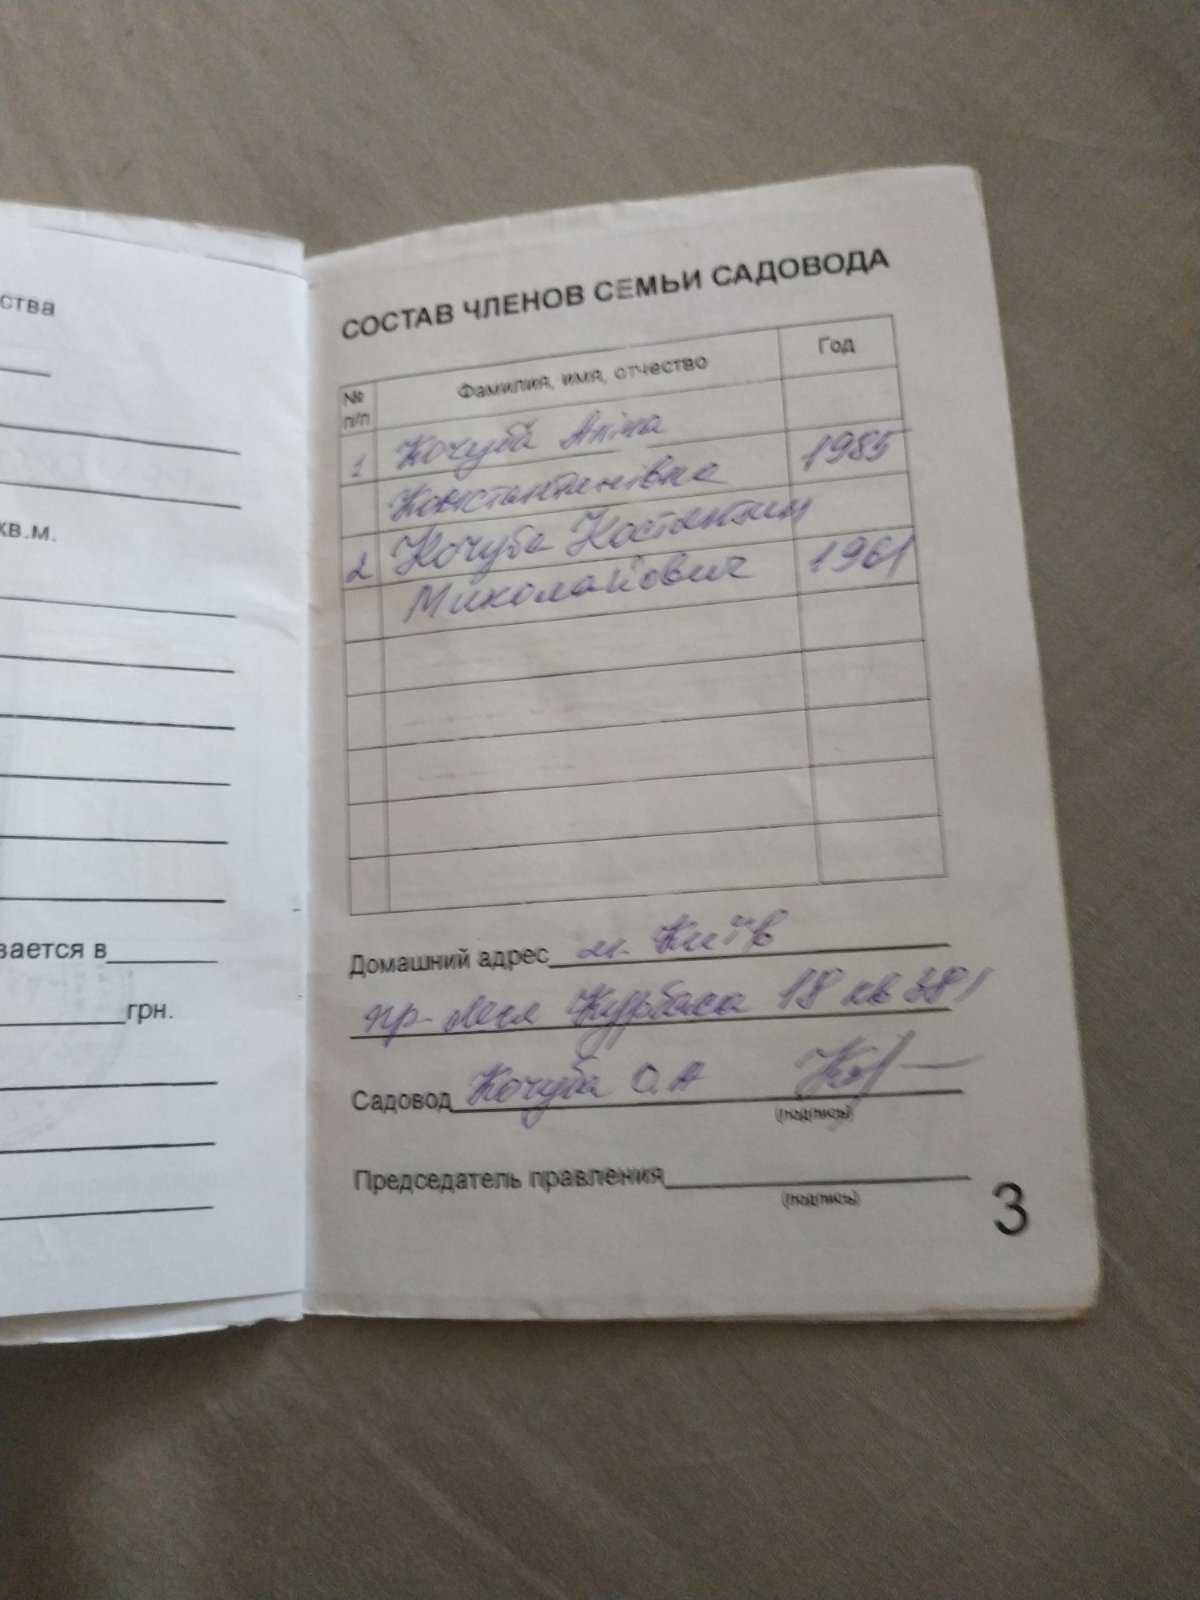 ства
кв.м.
вается в
грн.
СОСТАВ ЧЛЕНОВ СЕМЬИ САДОВОДА
№ п/п Фамилия, имя, отчество Год
1 Кочуба Аліна
Константинівна 1985
2 Кочуба Костянтин
Миколайович 1961
Домашний адрес м. Київ
пр-Леся Курбаса 18 кв 381
Садовод Кочуба О.А
(подпись)
Председатель правления
(подпись)
3